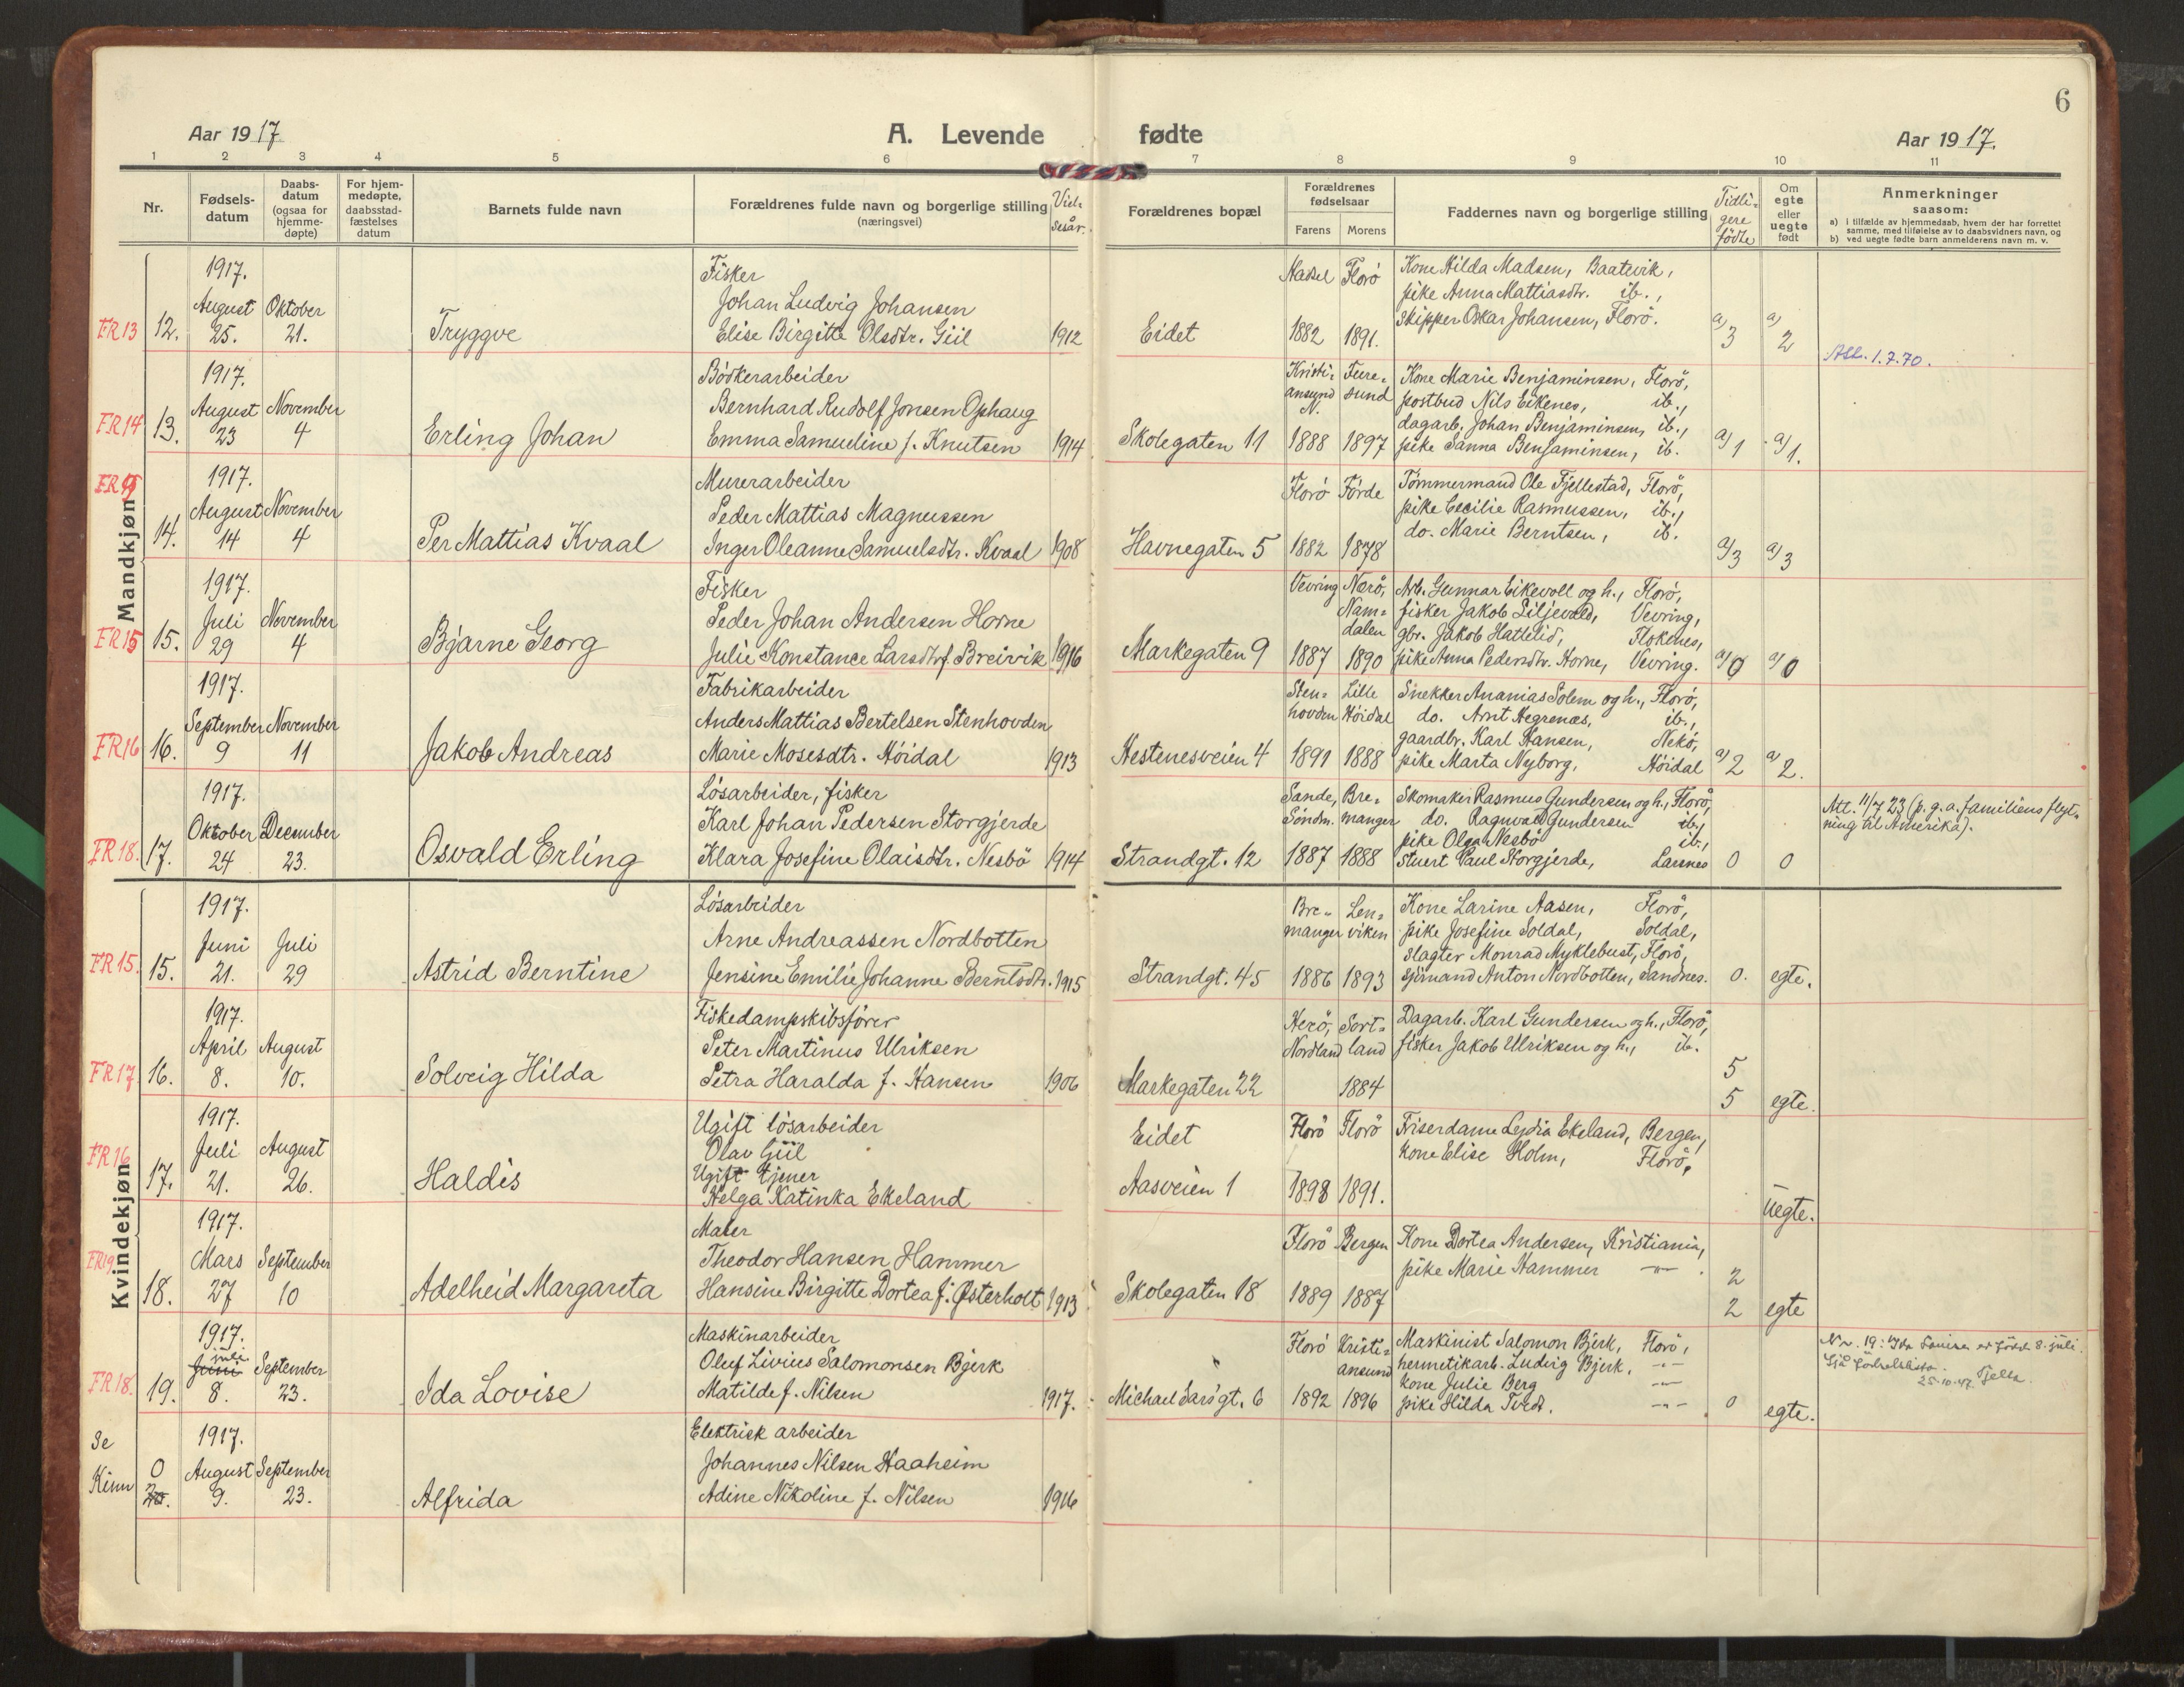 6
Aar 1917
A. Levende fødte
Aar 1917.
1 2 3 4 5 6 7 8 9 10 11
Nr.
Fødsels-
datum
Daabs-
datum
(ogsaa for
hjemme-
døpte)
For hjem-
medøpte,
daabsstad-
fæstelses
datum
Barnets fulde navn
Forældrenes fulde navn og borgerlige stilling
(næringsvei)
Viel-
sesår.
Forældrenes bopæl
Forældrenes
fødselsaar
Farens Morens
Faddernes navn og borgerlige stilling
Tidli-
gere
fødte
Om
egte
eller
uegte
født
Anmerkninger
saasom:
a) i tilfælde av hjemmedaab, hvem der har forrettet
samme, med tilføielse av to daabsvidners navn, og
b) ved uegte fødte barn anmelderens navn m. v.
Mandkjøn
FR13 12.
1917.
August 25.
Oktober 21.
Tryggve
Fisker
Johan Ludvig Johansen
Elise Birgitte Olsdtr. Giil 1912
Eidet
Hassel Florö
1882 1891.
Kone Hilda Madsen, Baatevik,
pike Anna Mattiasdtr. ib.,
Skipper Oskar Johansen, Florö.
a) 3 a) 2
1.7.70.
FR14 13.
1917.
August 23
November 4
Erling Johan
Bödkerarbeider
Bernhard Rudolf Jonsen Ophaug
Emma Samueline f. Knutsen 1914
Skolegaten 11
Kristi-
ansund
N.
Fure-
sund
1888 1897
Kone Marie Benjaminsen, Florö,
postbud Nils Eikenes, ib.,
dagarb. Johan Benjaminsen, ib.,
pike Sanna Benjaminsen, ib.
a) 1 a) 1.
14.
1917.
August 14
November 4
Per Mattias Kvaal
Murerarbeider
Peder Mattias Magnussen
Inger Oleanne Samuelsdtr. Kvaal 1908
Havnegaten 5
Florö Förde
1882 1878
Tömmermand Ole Fjellestad, Florö,
pike Cecilie Rasmussen, ib.,
do. Marie Berntsen, ib.
a) 3 a) 3
FR15 15.
1917.
Juli 29
November 4
Bjarne Georg
Fisker
Peder Johan Andersen Horne
Julie Konstance Larsdtr f. Breivik 1916
Markegaten 9
Vevring Nærö,
Nam-
dalen
1887 1890
Arb. Gunnar Eikevoll og h., Florö,
fisker Jakob Liljevald, Vevring,
gbr. Jakob Hattelid, Flokenes,
pike Anna Pedersdtr. Horne, Vevring.
a) 0 a) 0
FR16 16.
1917.
September 9
November 11
Jakob Andreas
Fabrikarbeider
Anders Mattias Bertelsen Stenhovden
Marie Mosesdtr. Höidal 1913
Hestenesveien 4
Sten-
hovden
Lille
Höidal
1891 1888
Snekker Ananias Solem og h., Florö,
do. Arnt Hegrenæs, ib.,
gaardbr. Karl Hansen, Nekö,
pike Marta Nyborg, Höidal
a) 2 a) 2.
FR18. 17.
1917.
Oktober 24
December 23.
Osvald Erling
Lösarbeider, fisker
Karl Johan Pedersen Storgjerde
Klara Josefine Olaisdtr. Nesbö 1914
Strandgt. 12
Sande,
Söndm.
Bre-
manger
1887 1888
Skomaker Rasmus Gundersen og h., Florö,
do. Ragnvald Gundersen ib.,
pike Olga Nesbö ib.,
Stuert Paul Storgjerde, Larsnes
0 0
Att. 11/7 23 (p. g. a. familiens flyt-
ning til Amerika).
Kvindekjøn
FR15. 15.
1917.
Juni 21.
Juli 29
Astrid Berntine
Lösarbeider
Arne Andreassen Nordbotten
Jensine Emilie Johanne Berntsdtr. 1915
Strandgt. 45
Bre-
manger
Len-
viken
1886 1893
Kone Larine Aasen, Florö,
pike Josefine Soldal, Soldal,
Slagter Monrad Myklebust, Florö,
sjömand Anton Nordbotten, Sandnes.
0. egte.
FR17 16.
1917.
April 8.
August 10.
Solveig Hilda
Fiskedampskibsförer
Peter Martinus Ulriksen
Petra Haralda f. Hansen 1906
Markegaten 22
Herö,
Nordland
Sort-
land
1884
Dagarb. Karl Gundersen og h., Florö,
fisker Jakob Ulriksen og h., ib.
5
5 egte.
FR16 17.
1917.
Juli 21.
August 26.
Haldis
Ugift lösarbeider
Olav Giil
Ugift tjener
Helga Katinka Ekeland
Eidet
Aasveien 1
Florö Florö
1898 1891.
Friserdame Lydia Ekeland, Bergen,
Kone Elise Holm, Florö,
Uegte.
FR19 18.
1917.
Mars 27
September 10
Adelheid Margareta
Maler
Theodor Hansen Hammer
Hansine Birgitte Dortea f. Østerholt 1913
Skolegaten 18
Florö Bergen
1889 1887
Kone Dortea Andersen, Kristiania,
pike Marie Hammer -"- .
2
2 egte
FR18. 19.
1917.
juli
Juni 8.
September 23.
Ida Lovise
Maskinarbeider
Oluf Livius Salomonsen Bjerk
Matilde f. Nilsen 1917.
Michael Sars' gt. 6
Florö Kristi-
ansund
1892 1896
Maskinist Salomon Bjerk, Florö,
hermetikarb. Ludvig Bjerk, -"-
Kone Julie Berg -"-
pike Hilda -"-
0 egte.
Nr. 19: Ida Lovise er född 8. juli.
Sjå födselslista.
25-10-47.
Se
Kinn
0
20.
1917.
August 9.
September 23.
Alfrida
Elektrisk arbeider
Johannes Nilsen Haaheim
Adine Nikoline f. Nilsen 1916